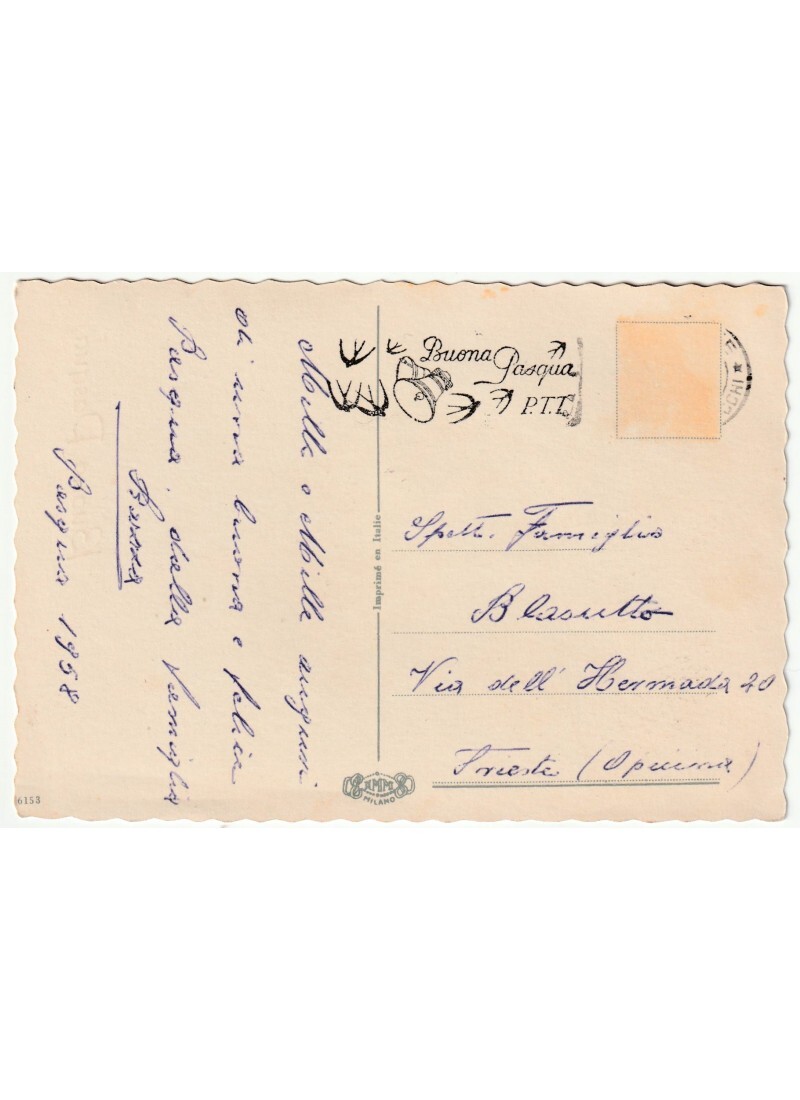 Mille e Mille auguri
di una buona e felice
Pasqua, dalla famiglia
Pasqua 1958
Buona Pasqua
P.T.T.
Spett. Famiglia
Blasutto
Via dell' Hermada 20
Trieste (Opicina)
Imprimé en Italie
MILANO
6153